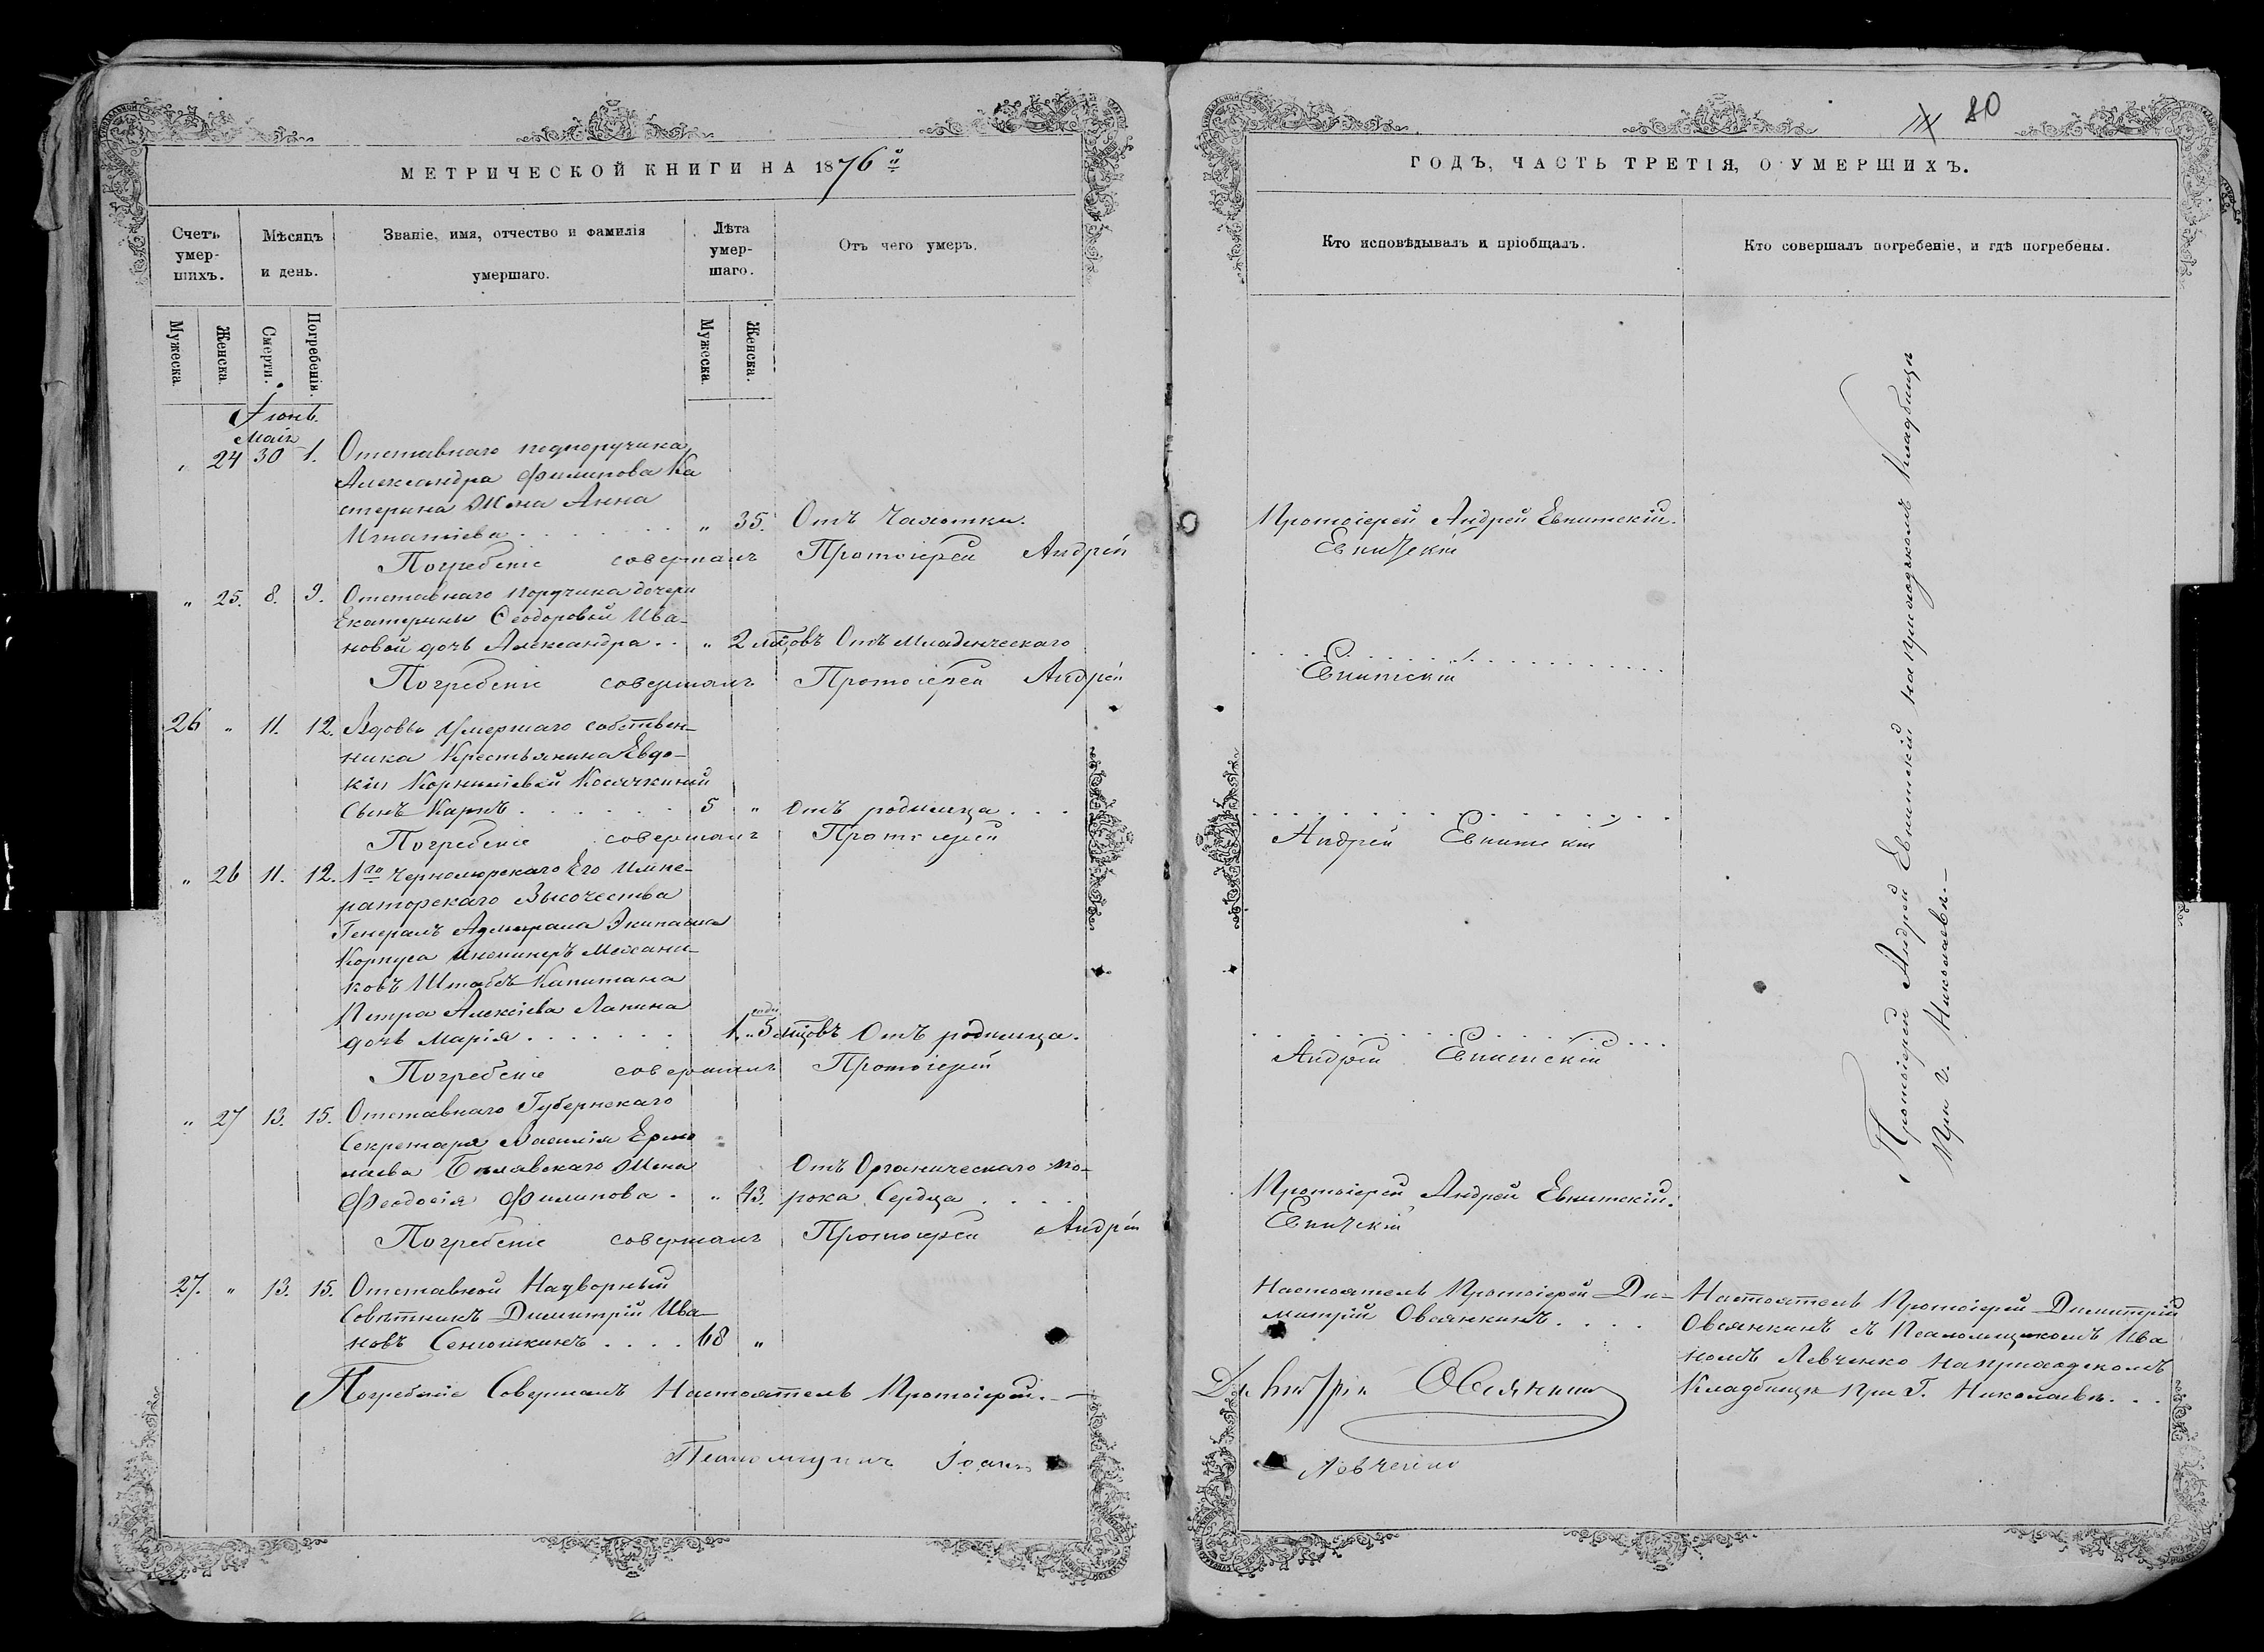 МЕТРИЧЕСКОЙ КНИГИ НА 1876й
Счетъ умер-шихъ.
Мѣсяцъ и день.
Званіе, имя, отчество и фамилія умершаго.
Лѣта умер-шаго.
Отъ чего умеръ.
Мужеска.
Женска.
Смерти.
Погребенія.
Мужеска.
Женска.
Іюнь.
Маія
„ 24 30 1. Отставнаго подпоручика
Александра Филипова Ка
стерина Жена Анна
Игнатіева . . . . . „ 35. Отъ Чахотки.
Погребеніе совершалъ Протоіерей Андрей
„ 25. 8. 9. Отставнаго поручика дочери
Екатерины Ѳеодоровой Ива-
новой дочь Александра . . „ 2 мѣцовъ Отъ Младенческаго
Погребеніе совершалъ Протоіерей Андрей
26 „ 11. 12. Вдовы умершаго собствен-
ника Крестьянина Евдо-
кіи Корниліевой Косячкиной
Сынъ Карпъ . . . . . 5 „ Отъ родимца . . .
Погребеніе совершалъ Протоіерей
„ 26 11. 12. 1го Черноморскаго Его Импе-
раторскаго Высочества
Генералъ Адмирала Экипажа
Корпуса Инженеръ Механи-
ковъ Штабсъ Капитана
Петра Алексіева Лапина
дочь Марія . . . . . . 1. „ 5 мѣцовъ Отъ родимца.
Погребеніе совершалъ Протоіерей
„ 27 13. 15. Отставнаго Губернскаго
Секретаря Василія Ермо
лаева Бѣлявскаго Жена
Феодосія Филипова . „ 43. Отъ Органическаго по-
рока Сердца . . . .
Погребеніе совершалъ Протоіерей Андрей
27. „ 13. 15. Отставной Надворный
Совѣтникъ Димитрій Ива-
новъ Сенюшкинъ . . . . 68 „
Погребеніе Совершалъ Настоятель Протоіерей.
Псаломщикъ Іоаннъ
80
ГОДЪ, ЧАСТЬ ТРЕТІЯ, О УМЕРШИХЪ.
Кто исповѣдывалъ и пріобщалъ.
Кто совершалъ погребеніе, и гдѣ погребены.
Протоіерей Андрей Евнитскій.
Евнитскій
Евнитскій
Андрей Евнитскій
Андрей Евнитскій
Протоіерей Андрей Евнитскій.
Евнитскій
Протоіерей Андрей Евнитскій на приходскомъ Кладбищѣ
При г. Николаевѣ.
Настоятель Протоіерей Ди-
митрій Овсянкинъ . . . .
Димитрій Овсянкинъ
Левченко
Настоятель Протоіерей Димитрій
Овсянкинъ съ Псаломщикомъ Ива
номъ Левченко на приходскомъ
Кладбищѣ при Г. Николаевѣ. . .